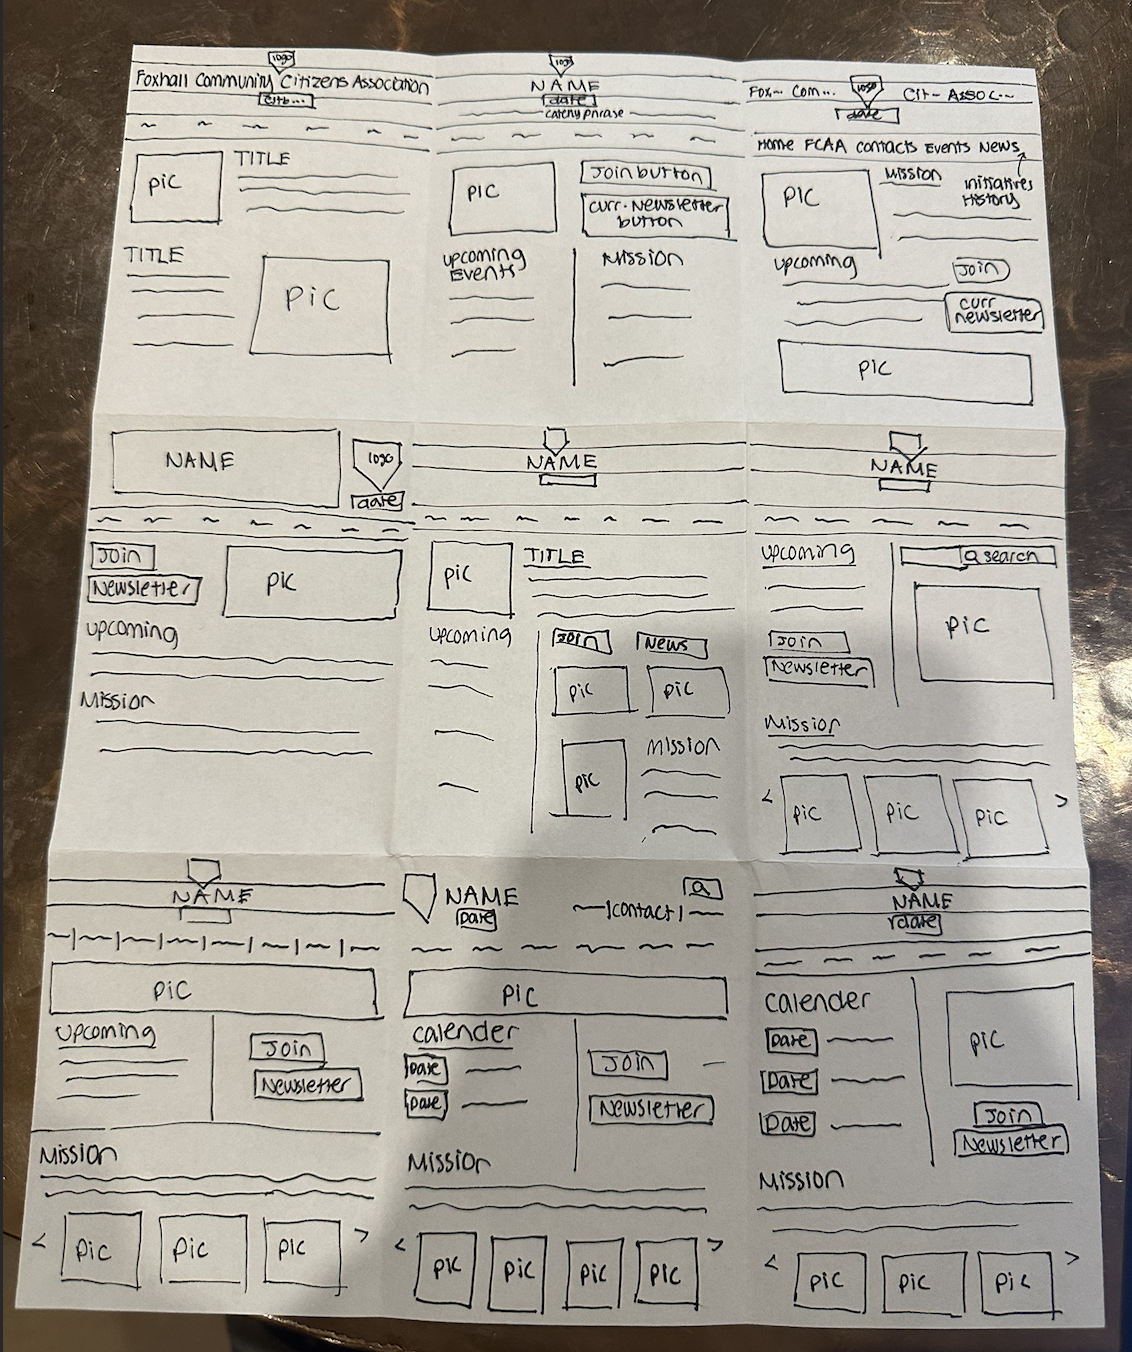 logo
Foxhall Community Citizens Association
TITLE
pic
TITLE
pic
logo
NAME
date
catchy phrase
pic
Join button
curr. Newsletter
button
upcoming
Events
Mission
logo
Fox-- Com... Cit- Assoc...
date
Home FCAA contacts Events News
pic
Mission
initiatives
History
upcoming
Join
curr
newsletter
pic
NAME
logo
date
Join
Newsletter
pic
upcoming
Mission
NAME
pic
TITLE
upcoming
Join
News
pic
pic
pic
Mission
NAME
upcoming
search
pic
Join
Newsletter
Mission
<
pic
pic
pic
>
NAME
pic
upcoming
Join
Newsletter
Mission
<
pic
pic
pic
>
NAME
Date
contact
pic
calender
Date
Date
Join
Newsletter
Mission
<
pic
pic
pic
pic
>
NAME
date
calender
Date
Date
Date
pic
Join
Newsletter
Mission
<
pic
pic
pic
>